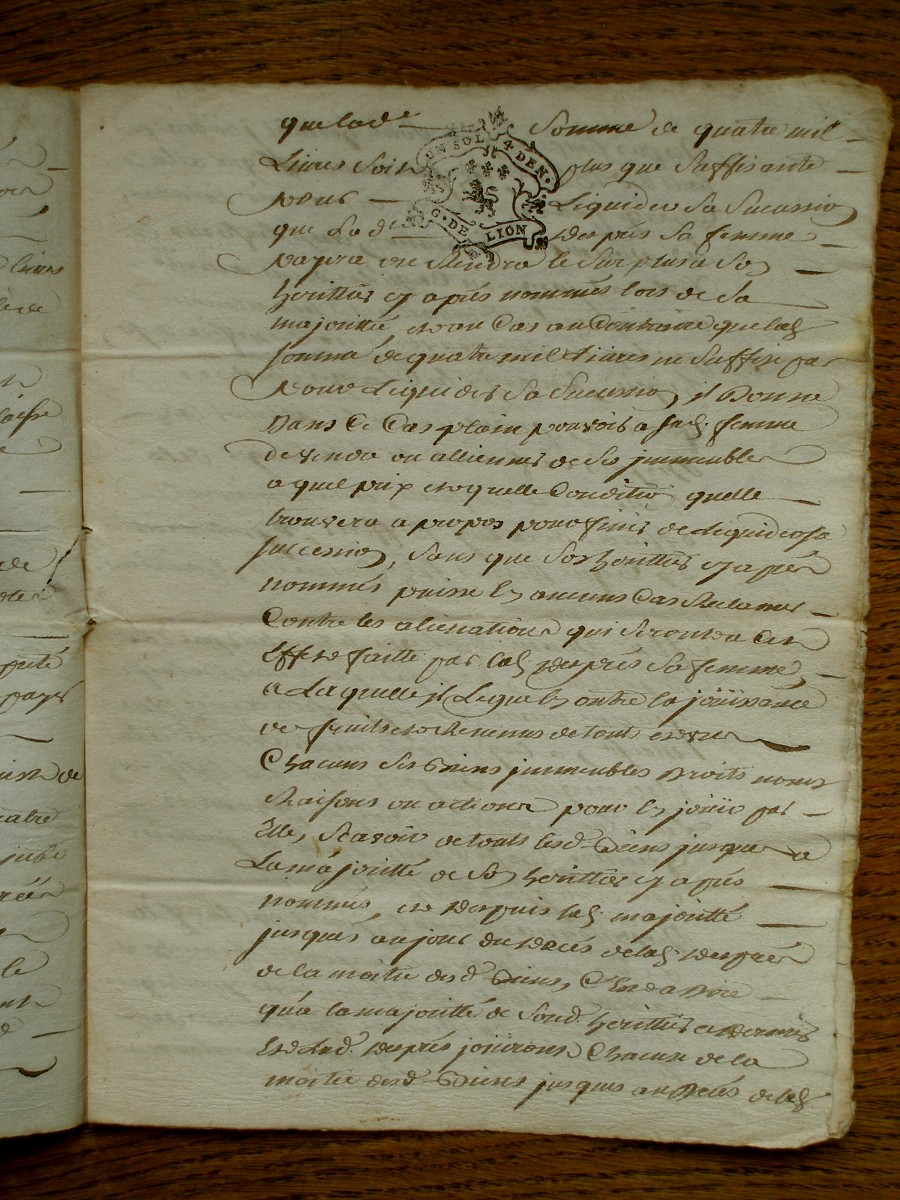 que lad.e somme de quatre mil
UN SOL 4 DEN.
G. DE LION
Livres soit plus que suffisante
pour Liquider sa succession
que La d.e Desprès sa femme
payera ou rendra le surplus a son
heritier cy après nommés lors de sa
majoritté, et au cas au Contraire que lad.
somme de quatre mil Livres ne suffise pas
pour Liquider sa succession, il Donne
Dans Ce Cas plain pouvoir a sad. femme
de vendre ou alliener de ses immeubles
a quel prix et a quelle Condition quelle
trouvera a propos pour finir de Liquider sa
succession, sans que son heritier cy après
nommés puisse en aucuns Cas Reclamer
Contre les alienations qui seront a Cet
Effet faitte par lad. Desprès sa femme,
a Laquelle il Legue en outre la joüissance
des fruits et Revenus de touts et
Chacuns ses Biens immeubles Droits noms
Raisons ou actions pour en joüir par
Elle, sçavoir de touts lesd. Biens jusques a
La majoritté de son heritier cy après
nommés, et depuis lad. majoritté
jusques au jour du decés de lad. Desprès
de la moitié desd. Biens, C'est a Dire
qu'a la majoritté de sond. heritier ce dernier
Et Lad. Desprès joüiront Chacun de la
moitié desd. Biens jusques au Decés de lad.